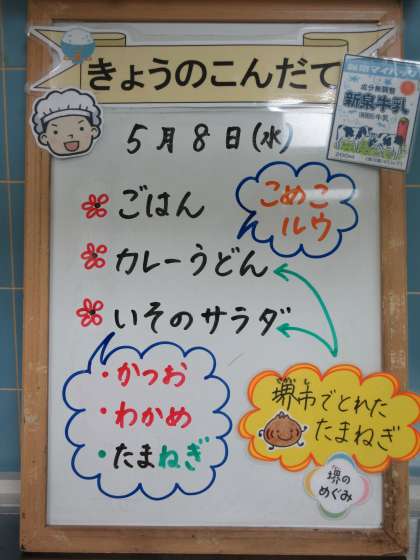 きょうのこんだて
成分無調整
新泉牛乳
200ml
5月8日(水)
ごはん
こめこ
ルウ
カレーうどん
いそのサラダ
・かつお
・わかめ
・たまねぎ
堺市でとれた
たまねぎ
堺の
めぐみ